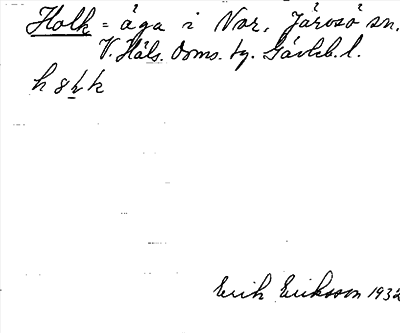 Holk = äga i Nor, Järvsö sn.
V. Häls. Doms. tg. Gävleb. l.
h 8 l k
Erik Eriksson 1932